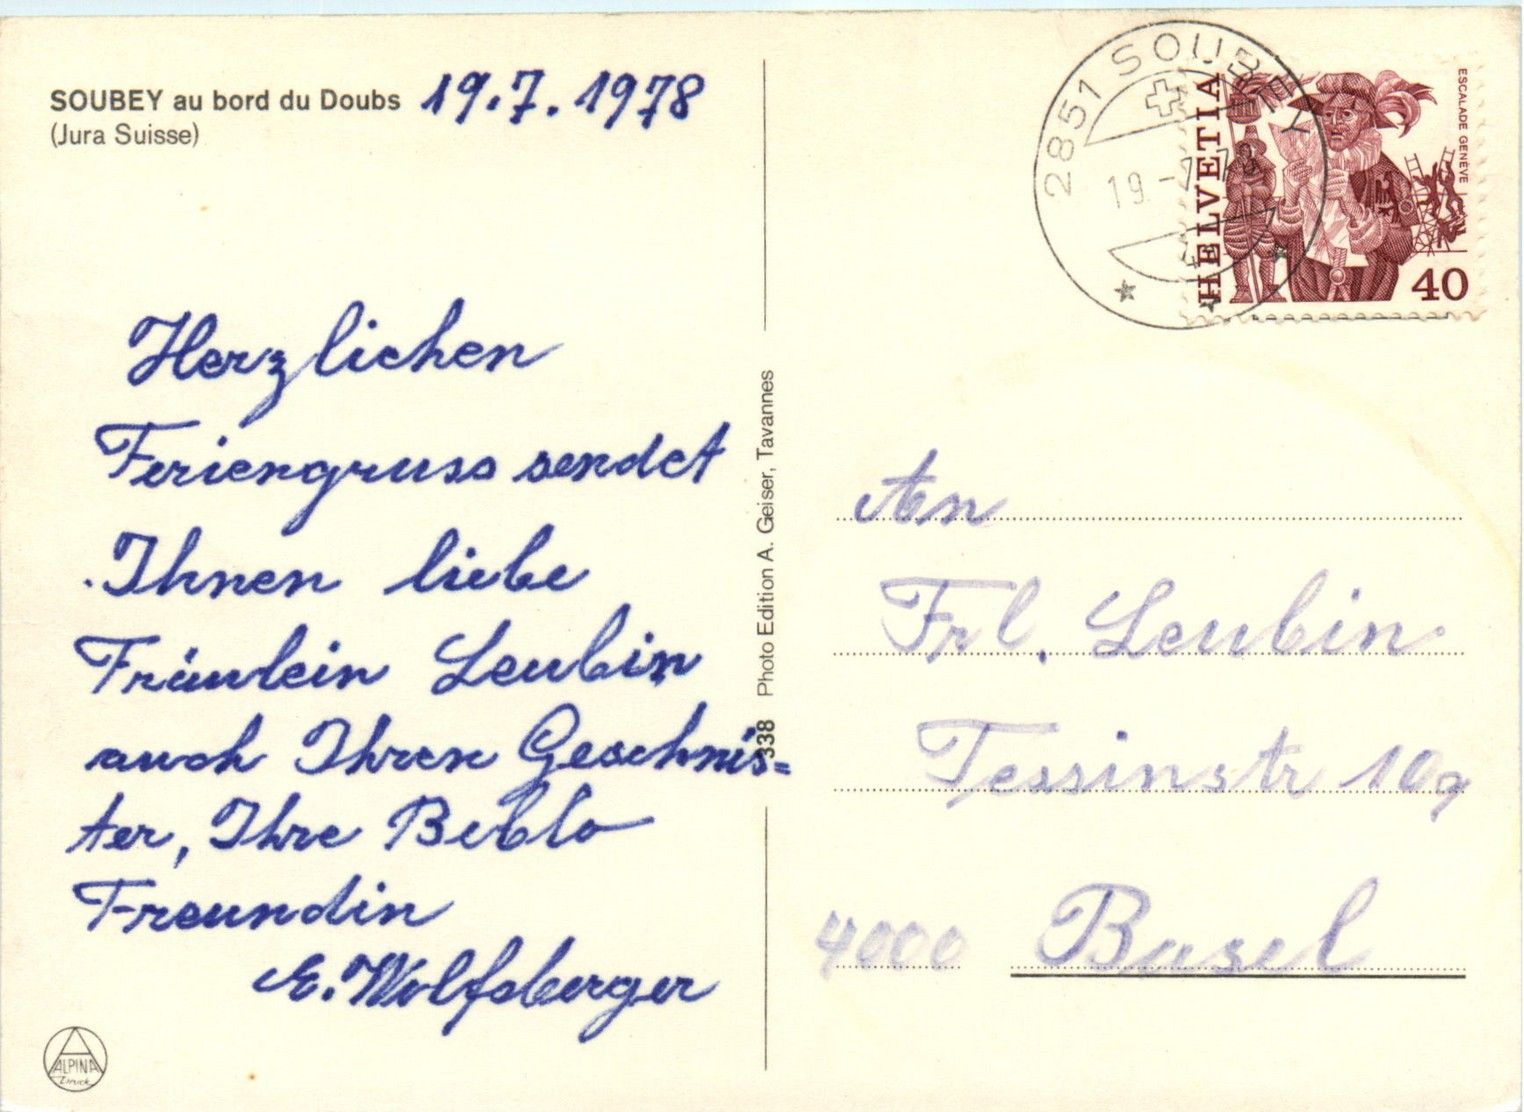 SOUBEY au bord du Doubs 19.7.1978
(Jura Suisse)
Herzlichen
Feriengruss sendet
Ihnen liebe
Fräulein Leubin
auch Ihren Geschwis=
ter, Ihre Biblo
Freundin
E. Wolfsberger
ALPINA
Druck
338 Photo Edition A. Geiser, Tavannes
2851 SOUBEY
19.-7.78
HELVETIA
ESCALADE GENÈVE
40
An
Frl. Leubin
Tessinstr 10
4000 Basel